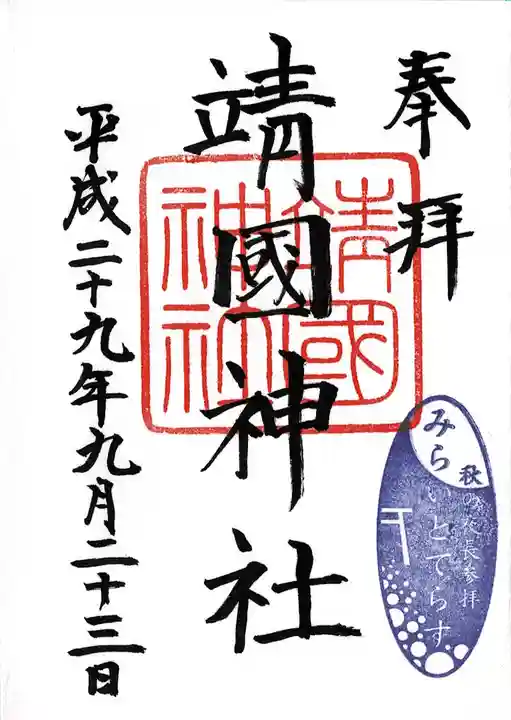 奉拝
靖國神社
靖國神社
平成二十九年九月二十三日
みらいとてらす
秋の夜長参拝